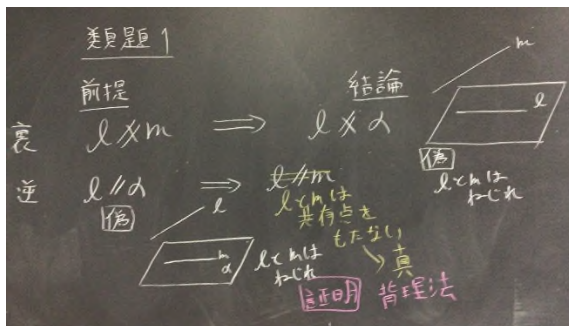 類題1
前提
結論
裏 l∦m ⇒ l∦α
m
l
偽
lとmは
ねじれ
逆 l//α ⇒ l//m
偽
lとmは
共有点を
もたない
↘真
l
m
α
lとmは
ねじれ
証明 背理法